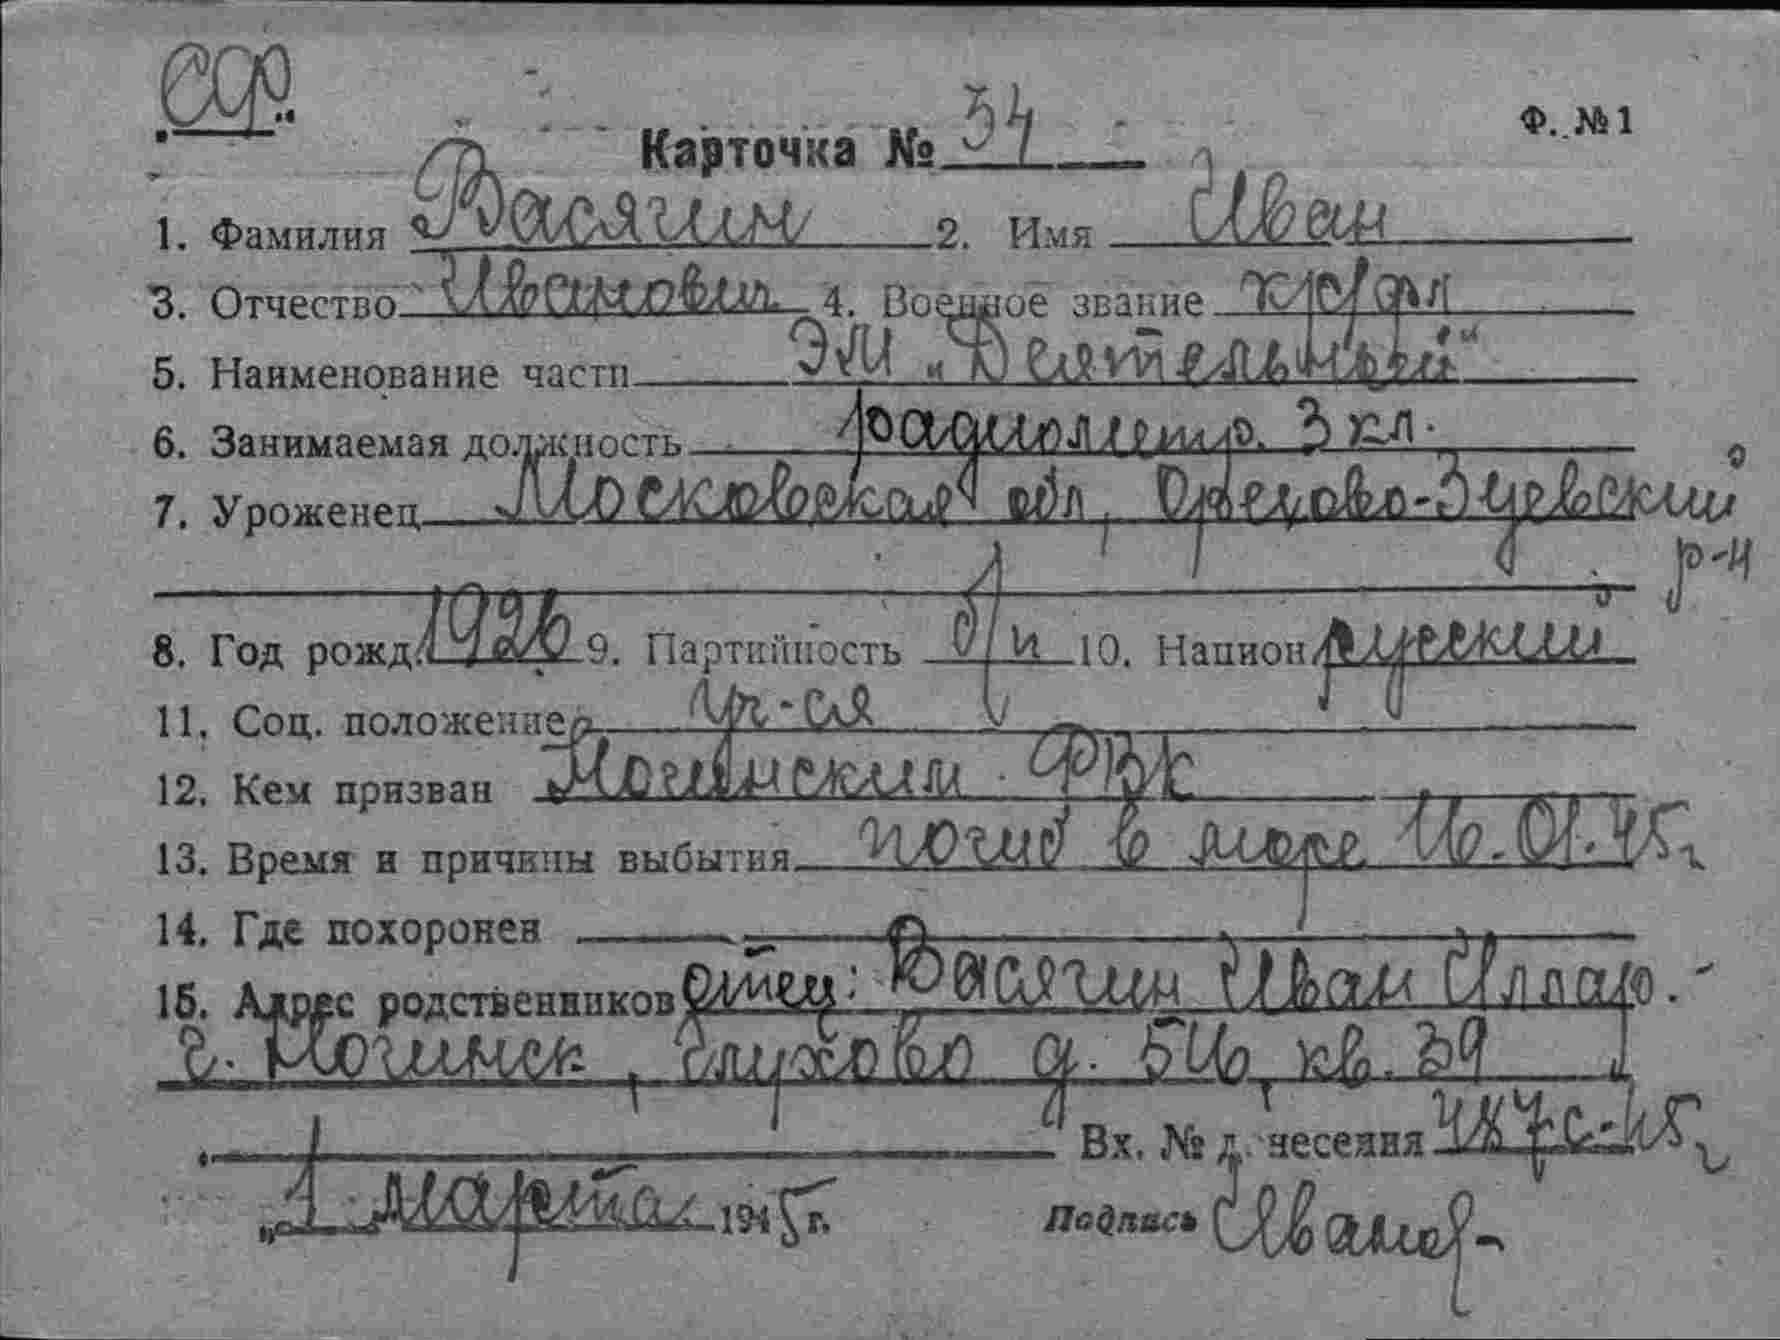 СФ.
Карточка № 34 Ф. №1
1. Фамилия Васягин 2. Имя Иван
3. Отчество Иванович 4. Военное звание кр/фл
5. Наименование части ЭМ „Деятельный“
6. Занимаемая должность радиометр. 3 кл.
7. Уроженец Московская обл, Орехово-Зуевский
р-н
8. Год рожд. 1926 9. Партийность б/п 10. Национ русский
11. Соц. положение уч-ся
12. Кем призван Ногинским РВК
13. Время и причины выбытия погиб в море 16.01.45г
14. Где похоронен
15. Адрес родственников отец: Васягин Иван Иллар.-
г. Ногинск, Глухово д. 516, кв. 39
Вх. № донесения 487с-45г
„1 марта 1945 г. Подпись